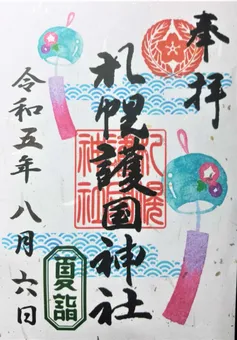 奉拝
札幌護国神社
令和五年八月六日
夏詣
札幌
護国
神社